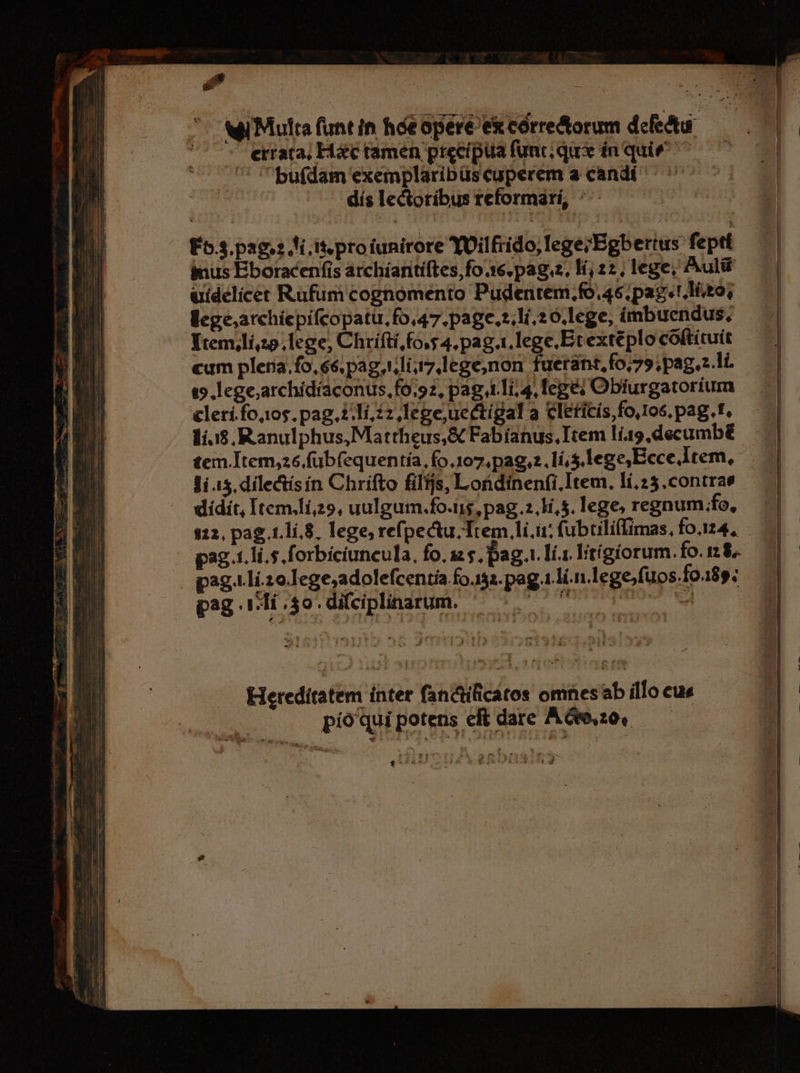 Multa sunt in hoc opere ex correctorum defectu
errata, Hæc tamen precipua sunt, quæ in quis
busdam exemplaribus cuperem a candi
dis lectoribus reformari,
Fo.3.pag.2.li.11.pro iunirore Wilfrido, lege, Egbertus septi
mus Eboracensis archiantistes, fo.16.pag.2. li, 22, lege, Aulū
uidelicet Rufum cognomento Pudentem, fo.46.pag.1.li.10,
lege, archiepiscopatu, fo.47.page.2, li.20. lege, imbuendus.
Item, li.29. lege, Christi, fo.54.pag.1. lege, Etextēplo cōstituit
cum plena. fo.66.pag.1. li.17, lege, non fuerant, fo.79.pag.2. li.
19. lege, archidiaconus, fo.92, pag.1. li.4, lege, Obiurgatorium
cleri. fo.105. pag.2. li.22, lege, uectigal a clericis, fo.106. pag.1,
li.18. Ranulphus, Mattheus, & Fabianus. Item li.19. decumbē
tem. Item, 26. subsequentia, fo.107. pag.2. li,3. lege, Ecce, Item,
li.15. dilectis in Christo filijs, Londinensi, Item. li.23. contras
didit, Item. li,29, uulgum. fo.115, pag.2, li,5. lege, regnum. fo,
122, pag.1. li.8. lege, respectu. Item, li.11: subtilissimas, fo.124,
pag.1. li.5. forbiciuncula, fo.125. pag.1. li.1. litigiorum. fo.128.
pag.1. li.20. lege, adolescentia. fo.152. pag.1. li.11. lege, suos. fo.189:
pag.1. li.30. disciplinarum.
Hereditatem inter sanctificatos omnes ab illo cus
pio qui potens est dare Acto,20,